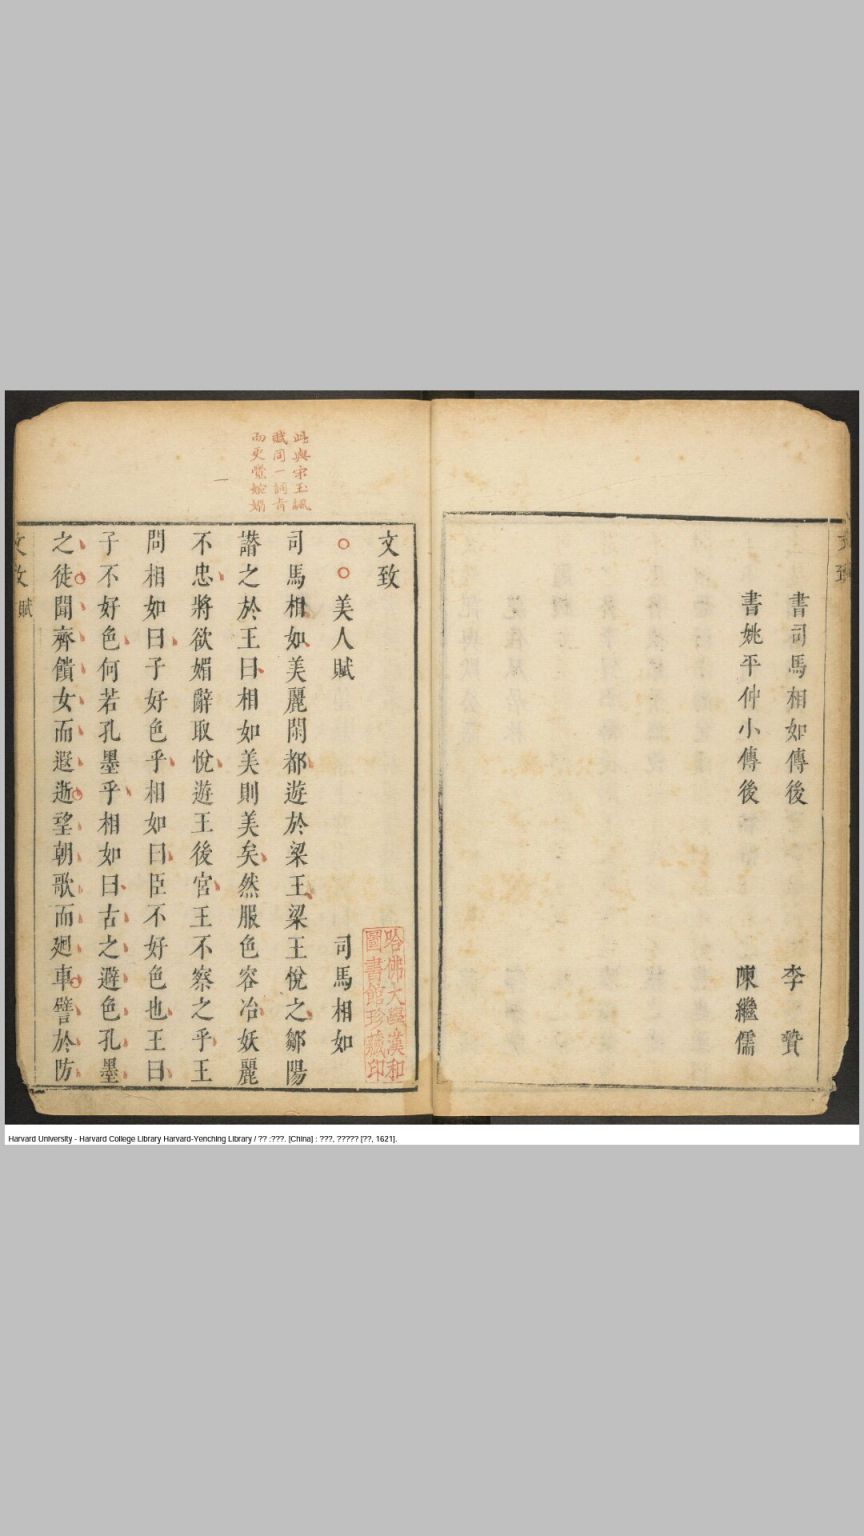 文致
書司馬相如傳後 李贄
書姚平仲小傳後 陳繼儒
此與宋玉諷
賦同一詞旨
而更覺婉媚
文致
美人賦 司馬相如
司馬相如美麗閑都遊於梁王梁王悅之鄒陽
譖之於王曰相如美則美矣然服色容冶妖麗
不忠將欲媚辭取悅遊王後宮王不察之乎王
問相如曰子好色乎相如曰臣不好色也王曰
子不好色何若孔墨乎相如曰古之避色孔墨
之徒聞齊饋女而遐逝望朝歌而廻車譬於防
文致 賦
哈佛大學漢和
圖書館珍藏印
Harvard University - Harvard College Library Harvard-Yenching Library / ?? :???. [China] : ???, ????? [??, 1621].